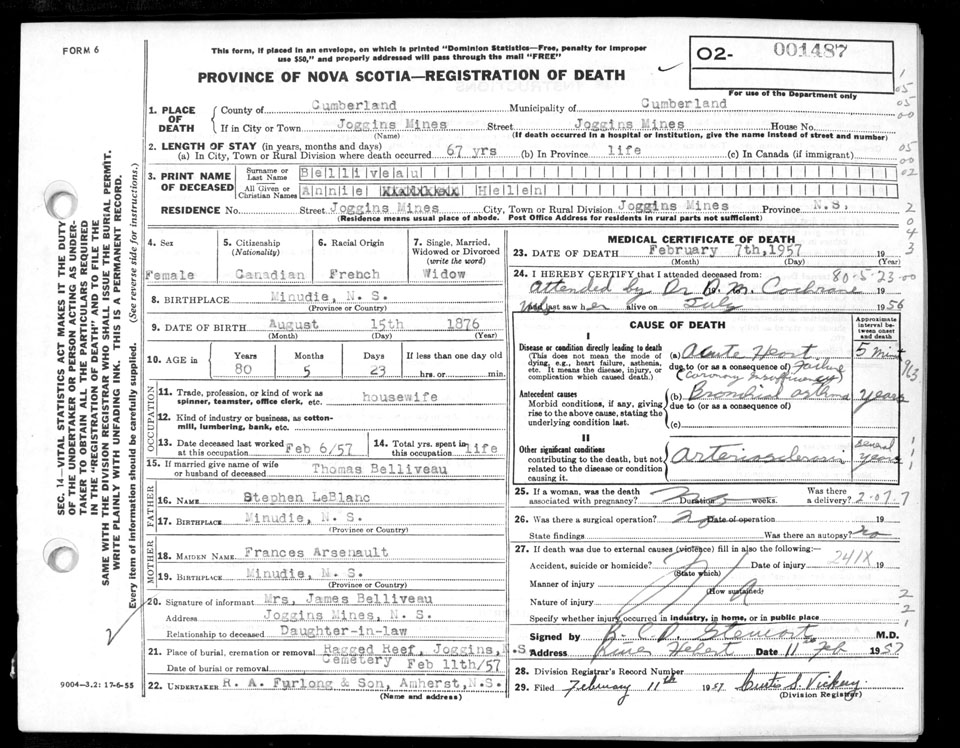 FORM 6
This form, if placed in an envelope, on which is printed "Dominion Statistics—Free, penalty for improper
use $50," and properly addressed will pass through the mail "FREE"
PROVINCE OF NOVA SCOTIA—REGISTRATION OF DEATH
O2- 001487
For use of the Department only
1. PLACE OF DEATH County of Cumberland Municipality of Cumberland
If in City or Town Joggins Mines Street Joggins Mines House No.
(Name) (If death occurred in a hospital or institution, give the name instead of street and number)
2. LENGTH OF STAY (in years, months and days)
(a) In City, Town or Rural Division where death occurred 67 yrs (b) In Province life (c) In Canada (if immigrant)
3. PRINT NAME OF DECEASED Surname or Last Name Belliveau
All Given or Christian Names Annie Helen
RESIDENCE No. Street Joggins Mines City, Town or Rural Division Joggins Mines Province N.S.
(Residence means usual place of abode. Post Office Address for residents in rural parts not sufficient)
4. Sex 5. Citizenship (Nationality) 6. Racial Origin 7. Single, Married, Widowed or Divorced (write the word)
Female Canadian French Widow
8. BIRTHPLACE Minudie, N. S.
(Province or Country)
9. DATE OF BIRTH August 15th 1876
(Month) (Day) (Year)
10. AGE in Years Months Days If less than one day old
80 5 23 hrs. or min.
OCCUPATION
11. Trade, profession, or kind of work as spinner, teamster, office clerk, etc. housewife
12. Kind of industry or business, as cotton-mill, lumbering, bank, etc.
13. Date deceased last worked at this occupation Feb 6/57 14. Total yrs. spent in this occupation life
15. If married give name of wife or husband of deceased Thomas Belliveau
FATHER
16. Name Stephen LeBlanc
17. Birthplace Minudie, N. S.
(Province or Country)
MOTHER
18. Maiden Name Frances Arsenault
19. Birthplace Minudie, N. S.
(Province or Country)
20. Signature of informant Mrs. James Belliveau
Address Joggins Mines, N. S.
Relationship to deceased Daughter-in-law
21. Place of burial, cremation or removal Ragged Reef, Joggins, N.S
Cemetery
Date of burial or removal Feb 11th/57
22. Undertaker R. A. Furlong & Son, Amherst, N.S.
(Name and address)
MEDICAL CERTIFICATE OF DEATH
23. DATE OF DEATH February 7th, 1957
(Month) (Day) (Year)
24. I HEREBY CERTIFY that I attended deceased from: 80-5-23-00
Attended by Dr D. M. Cochrane 19
last saw her alive on July 1956
CAUSE OF DEATH
Approximate interval between onset and death
I
Disease or condition directly leading to death
(This does not mean the mode of dying, e.g., heart failure, asthenia, etc. It means the disease, injury, or complication which caused death.)
(a) Acute Heart 5 Min
due to (or as a consequence of) Failure
(Coronary Insufficiency)
Antecedent causes
Morbid conditions, if any, giving rise to the above cause, stating the underlying condition last.
(b) Bronchial asthma years
due to (or as a consequence of)
(c)
II
Other significant conditions
contributing to the death, but not related to the disease or condition causing it.
Arteriosclerosis Several years
25. If a woman, was the death associated with pregnancy? No Duration weeks. Was there a delivery? 2-07-7
26. Was there a surgical operation? No Date of operation 19
State findings Was there an autopsy? no
27. If death was due to external causes (violence) fill in also the following:—
Accident, suicide or homicide? Date of injury 241X 19
(State which)
Manner of injury
(How sustained)
Nature of injury
Specify whether injury occurred in industry, in home, or in public place
Signed by Stewart M.D.
Address River Hebert Date 11 Feb 1957
28. Division Registrar's Record Number
29. Filed February 11th 1957 Curtis S. Vickery
(Division Registrar)
SEC. 14—VITAL STATISTICS ACT MAKES IT THE DUTY
OF THE UNDERTAKER OR PERSON ACTING AS UNDER-
TAKER TO OBTAIN ALL THE PARTICULARS REQUIRED
IN THE "REGISTRATION OF DEATH" AND TO FILE THE
SAME WITH THE DIVISION REGISTRAR WHO SHALL ISSUE THE BURIAL PERMIT.
WRITE PLAINLY WITH UNFADING INK. THIS IS A PERMANENT RECORD.
Every item of information should be carefully supplied. (See reverse side for instructions.)
9004—3.2: 17-6-55